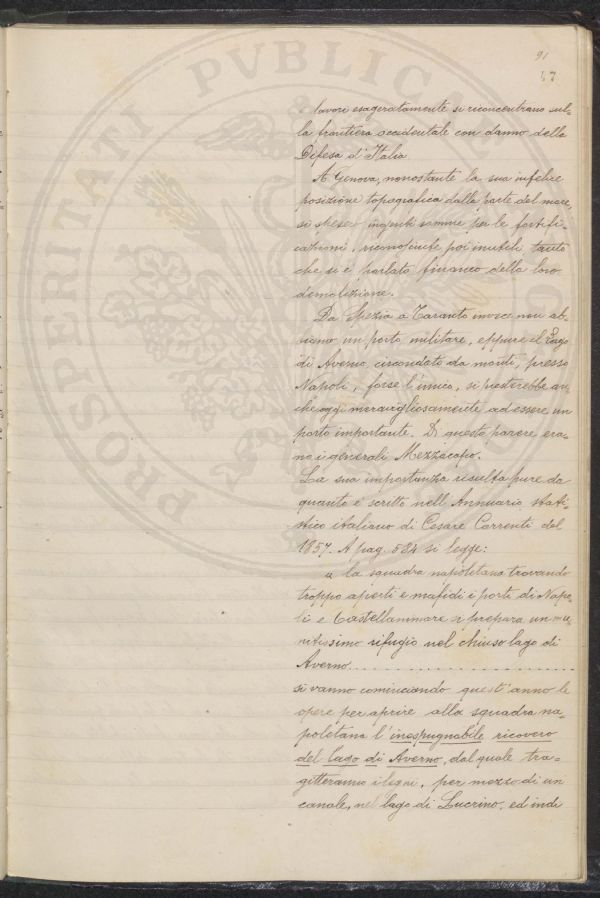 91
47
lavori esageratamente si riconcentrano sul=
la frontiera occidentale con danno della
Difesa d'Italia
A Genova, nonostante la sua infelice
posizione topografica dalla parte del mare,
si spese ingenti somme per le fortifi=
cazioni, riconosciute poi inutili tanto
che si è parlato financo della loro
demolizione.
Da Spezia a Taranto invece non ab=
biamo un porto militare, eppure il Lago
di Averno, circondato da monti, presso
Napoli, forse l'unico, si presterebbe an
che oggi meravigliosamente ad essere un
porto importante. Di questo parere era=
no i generali Mezzacapo.
La sua importanza risulta pure da
quanto è scritto nell'Annuario stati=
stico italiano di Cesare Correnti del
1857. A pag. 584 si legge:
« la squadra napoletana trovando
troppo aperti e mafidi i porti di Napo=
li e Castellammare si prepara un mu
nitissimo rifugio nel chiuso lago di
Averno....................................
si vanno cominciando quest'anno le
opere per aprire alla squadra na=
poletana l'inespugnabile ricovero
del Lago di Averno, dal quale tra=
gitteranno i legni, per mezzo di un
canale, nel lago di Lucrino, ed indi
PUBLICA
PROSPERITATI